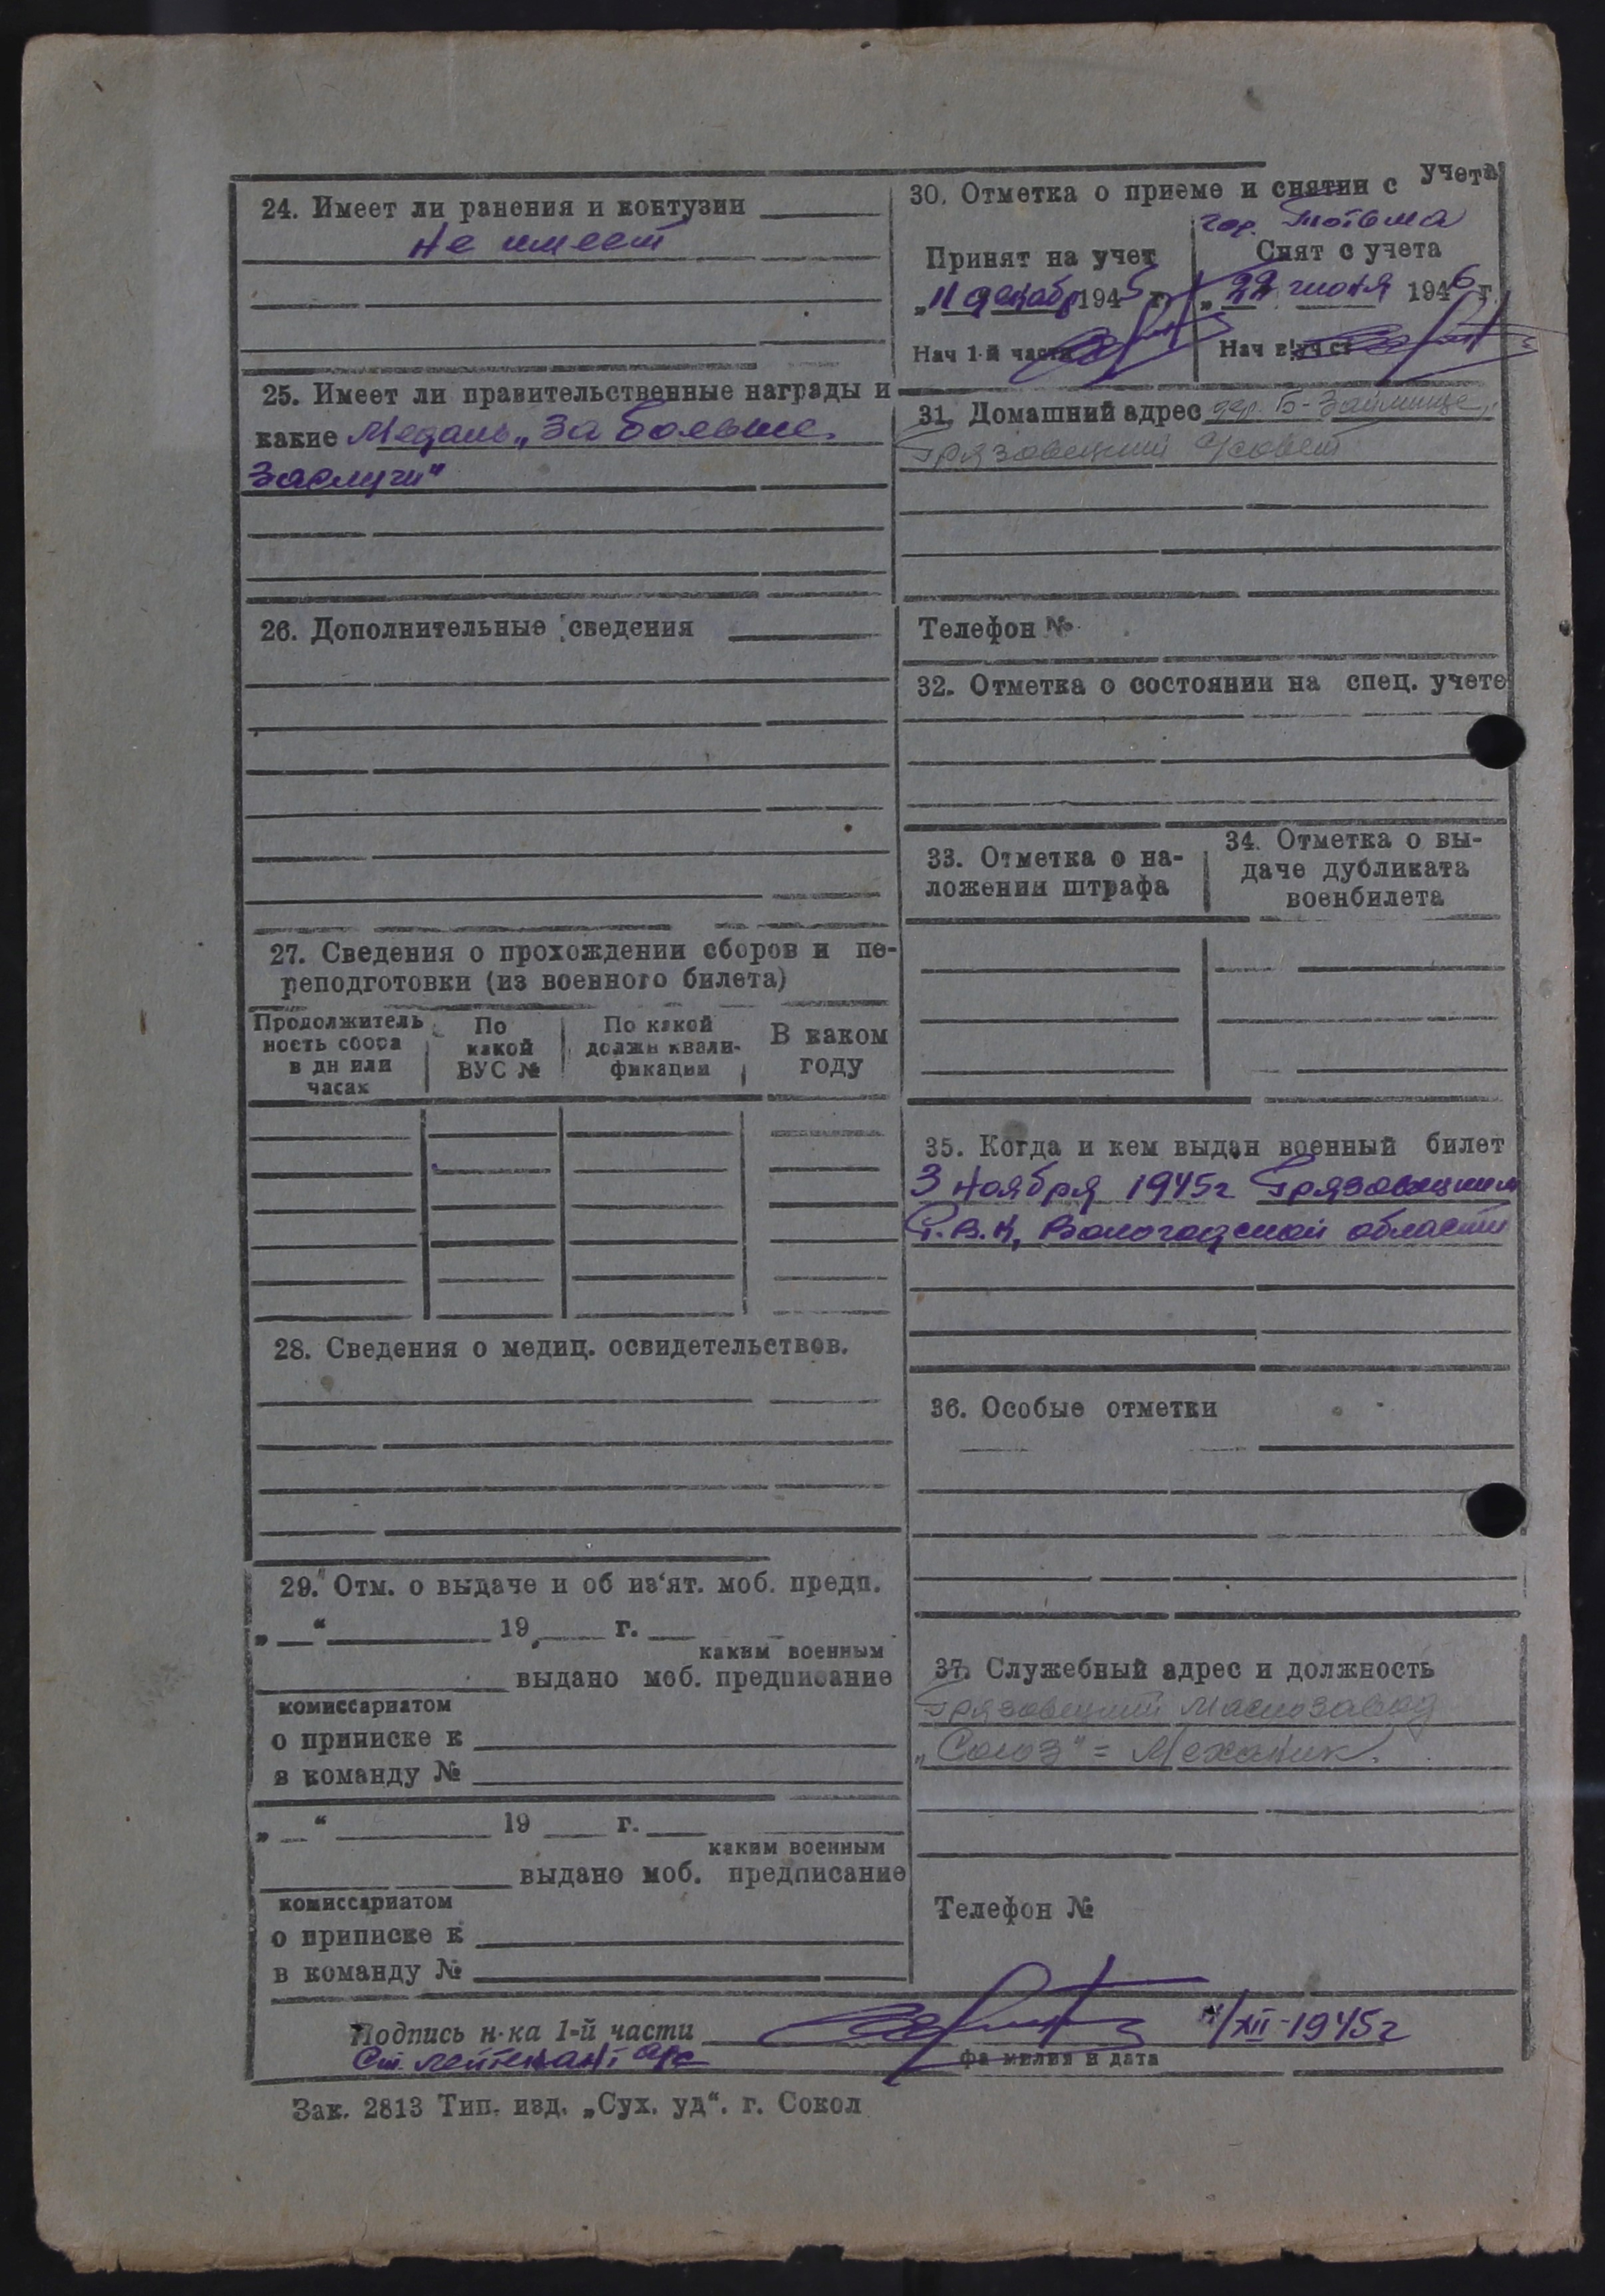 24. Имеет ли ранения и контузии
Не имеет
25. Имеет ли правительственные награды и
какие Медаль „За боевые
Заслуги"
26. Дополнительные сведения
27. Сведения о прохождении сборов и пе-
реподготовки (из военного билета)
Продолжитель
ность сбора
в дн или
часах
По
какой
ВУС №
По какой
должн квали-
фикации
В каком
году
28. Сведения о медиц. освидетельствов.
29. Отм. о выдаче и об из'ят. моб. предп.
„ “ 19 г.
каким военным
выдано моб. предписание
комиссариатом
о приписке к
в команду №
„ “ 19 г.
каким военным
выдано моб. предписание
комиссариатом
о приписке к
в команду №
30. Отметка о приеме и снятии с учета
гор. Тотьма
Принят на учет
„11 декабр 1945 г.
Нач 1-й части
Снят с учета
„22 июня 1946 г.
Нач
31. Домашний адрес дер. Б-Займище,
Грязовецкий с/совет
Телефон №
32. Отметка о состоянии на спец. учете
33. Отметка о на-
ложении штрафа
34. Отметка о вы-
даче дубликата
военбилета
35. Когда и кем выдан военный билет
3 Ноября 1945г Грязовецким
Р.В.К, Вологодской области
36. Особые отметки
37. Служебный адрес и должность
Грязовецкий Маслозавод
„Союз" = Механик.
Телефон №
Подпись н-ка 1-й части
/XII-1945г
Ст. лейтенант
фамилия и дата
Зак. 2813 Тип. изд. „Сух. уд“. г. Сокол